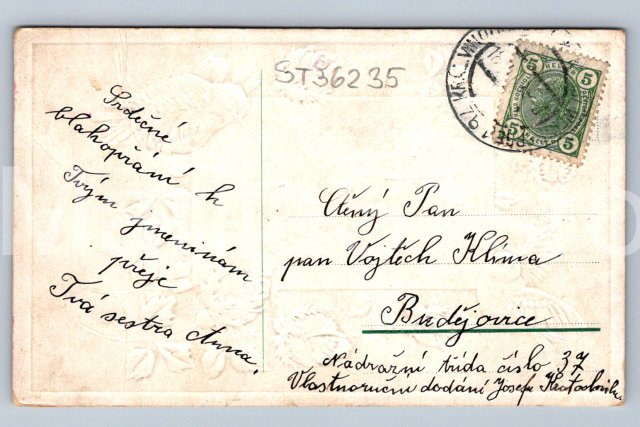 ST36235
Srdečné
blahopřání k
Tvým jmeninám
přeje
Tvá sestra Anna.
5 5
5 5
Ctěný Pan
pan Vojtěch Klíma
Budějovice
Nádražní třída číslo 37
Vlastnoruční dodání Josefu